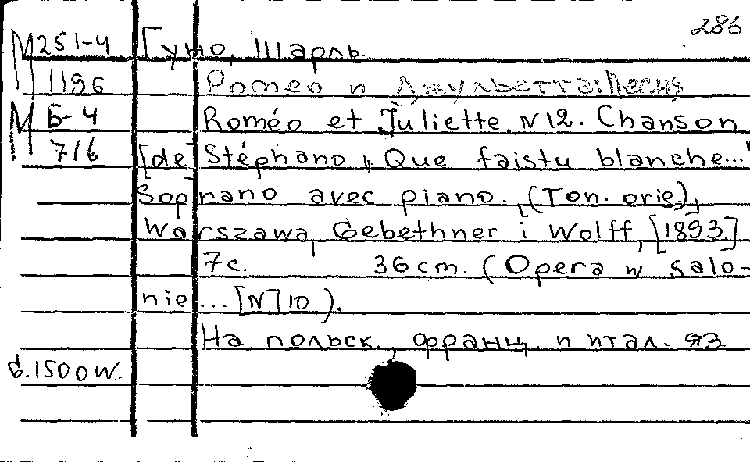 286
М 251-4 Гуно, Шарль
1196 Ромео и Джульетта: Песня
М Б-4 Roméo et Juliette. N12. Chanson
716 [de] Stéphano „Que faistu blanche..."
Soprano avec piano. (Ton. orie),
Warszawa, Gebethner i Wolff, [1893]
7с. 36cm. (Opera w salo-
nie...[N]10).
На польск., франц. и итал. яз
6.1500w.